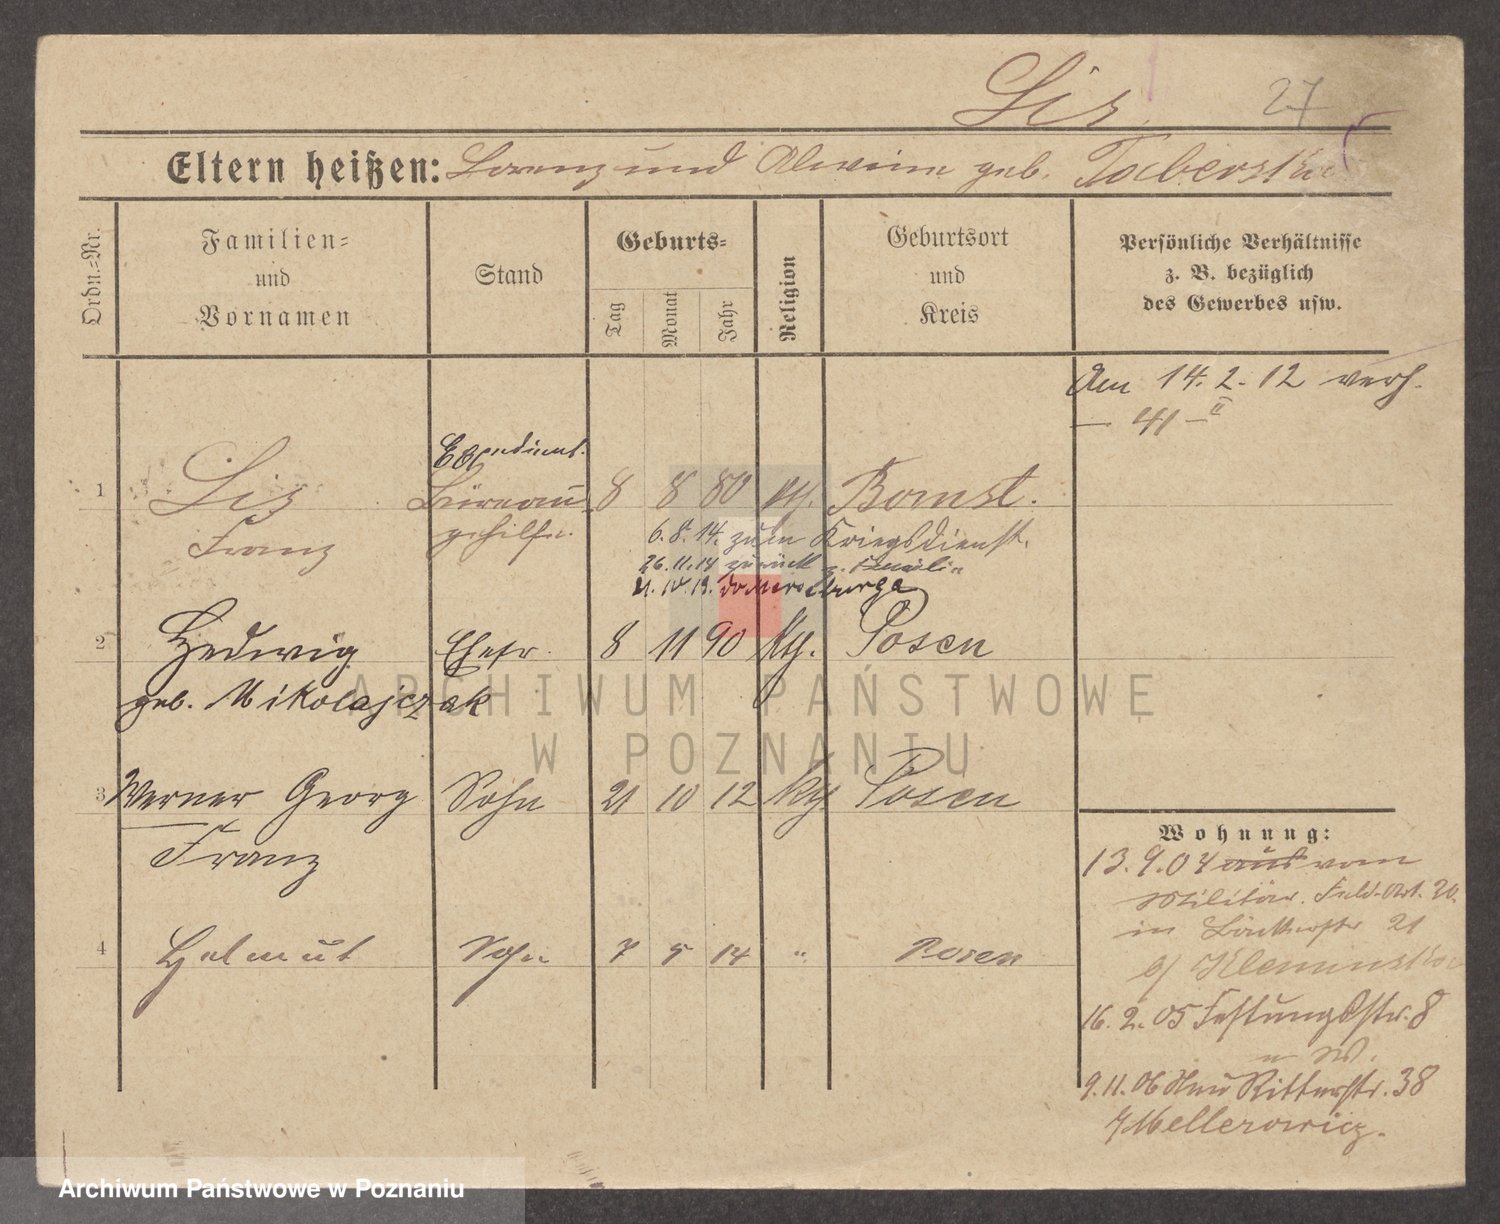 Lis 27
Eltern heißen: Lorenz und Alwine geb. Taberska
Ordn.-Nr.
Familien-
und
Vornamen
Stand
Geburts-
Tag
Monat
Jahr
Religion
Geburtsort
und
Kreis
Persönliche Verhältnisse
z. B. bezüglich
des Gewerbes usw.
Am 14. 2. 12 verh.
Expedient.
1 Lis Büreau 8 8 80 kth. Bomst.
Franz gehilfe.
6. 8. 14. zum Kriegsdienst.
26. 11. 14 zurück z. Familie
2 Hedwig Ehefr. 8 11 90 kth. Posen
geb. Mikolajczak
3 Werner Georg Sohn 21 10 12 kth. Posen
Franz
4 Helmut Sohn 7 5 14 " Posen
Wohnung:
13. 9. 04 aus vom
Militär. Feld-Art. 20.
in 21
b/
16. 2. 05 Festungsstr. 8
n W.
9. 11. 06 Neu Ritterstr. 38
Mellerowicz.
ARCHIWUM PAŃSTWOWE
W POZNANIU
Archiwum Państwowe w Poznaniu